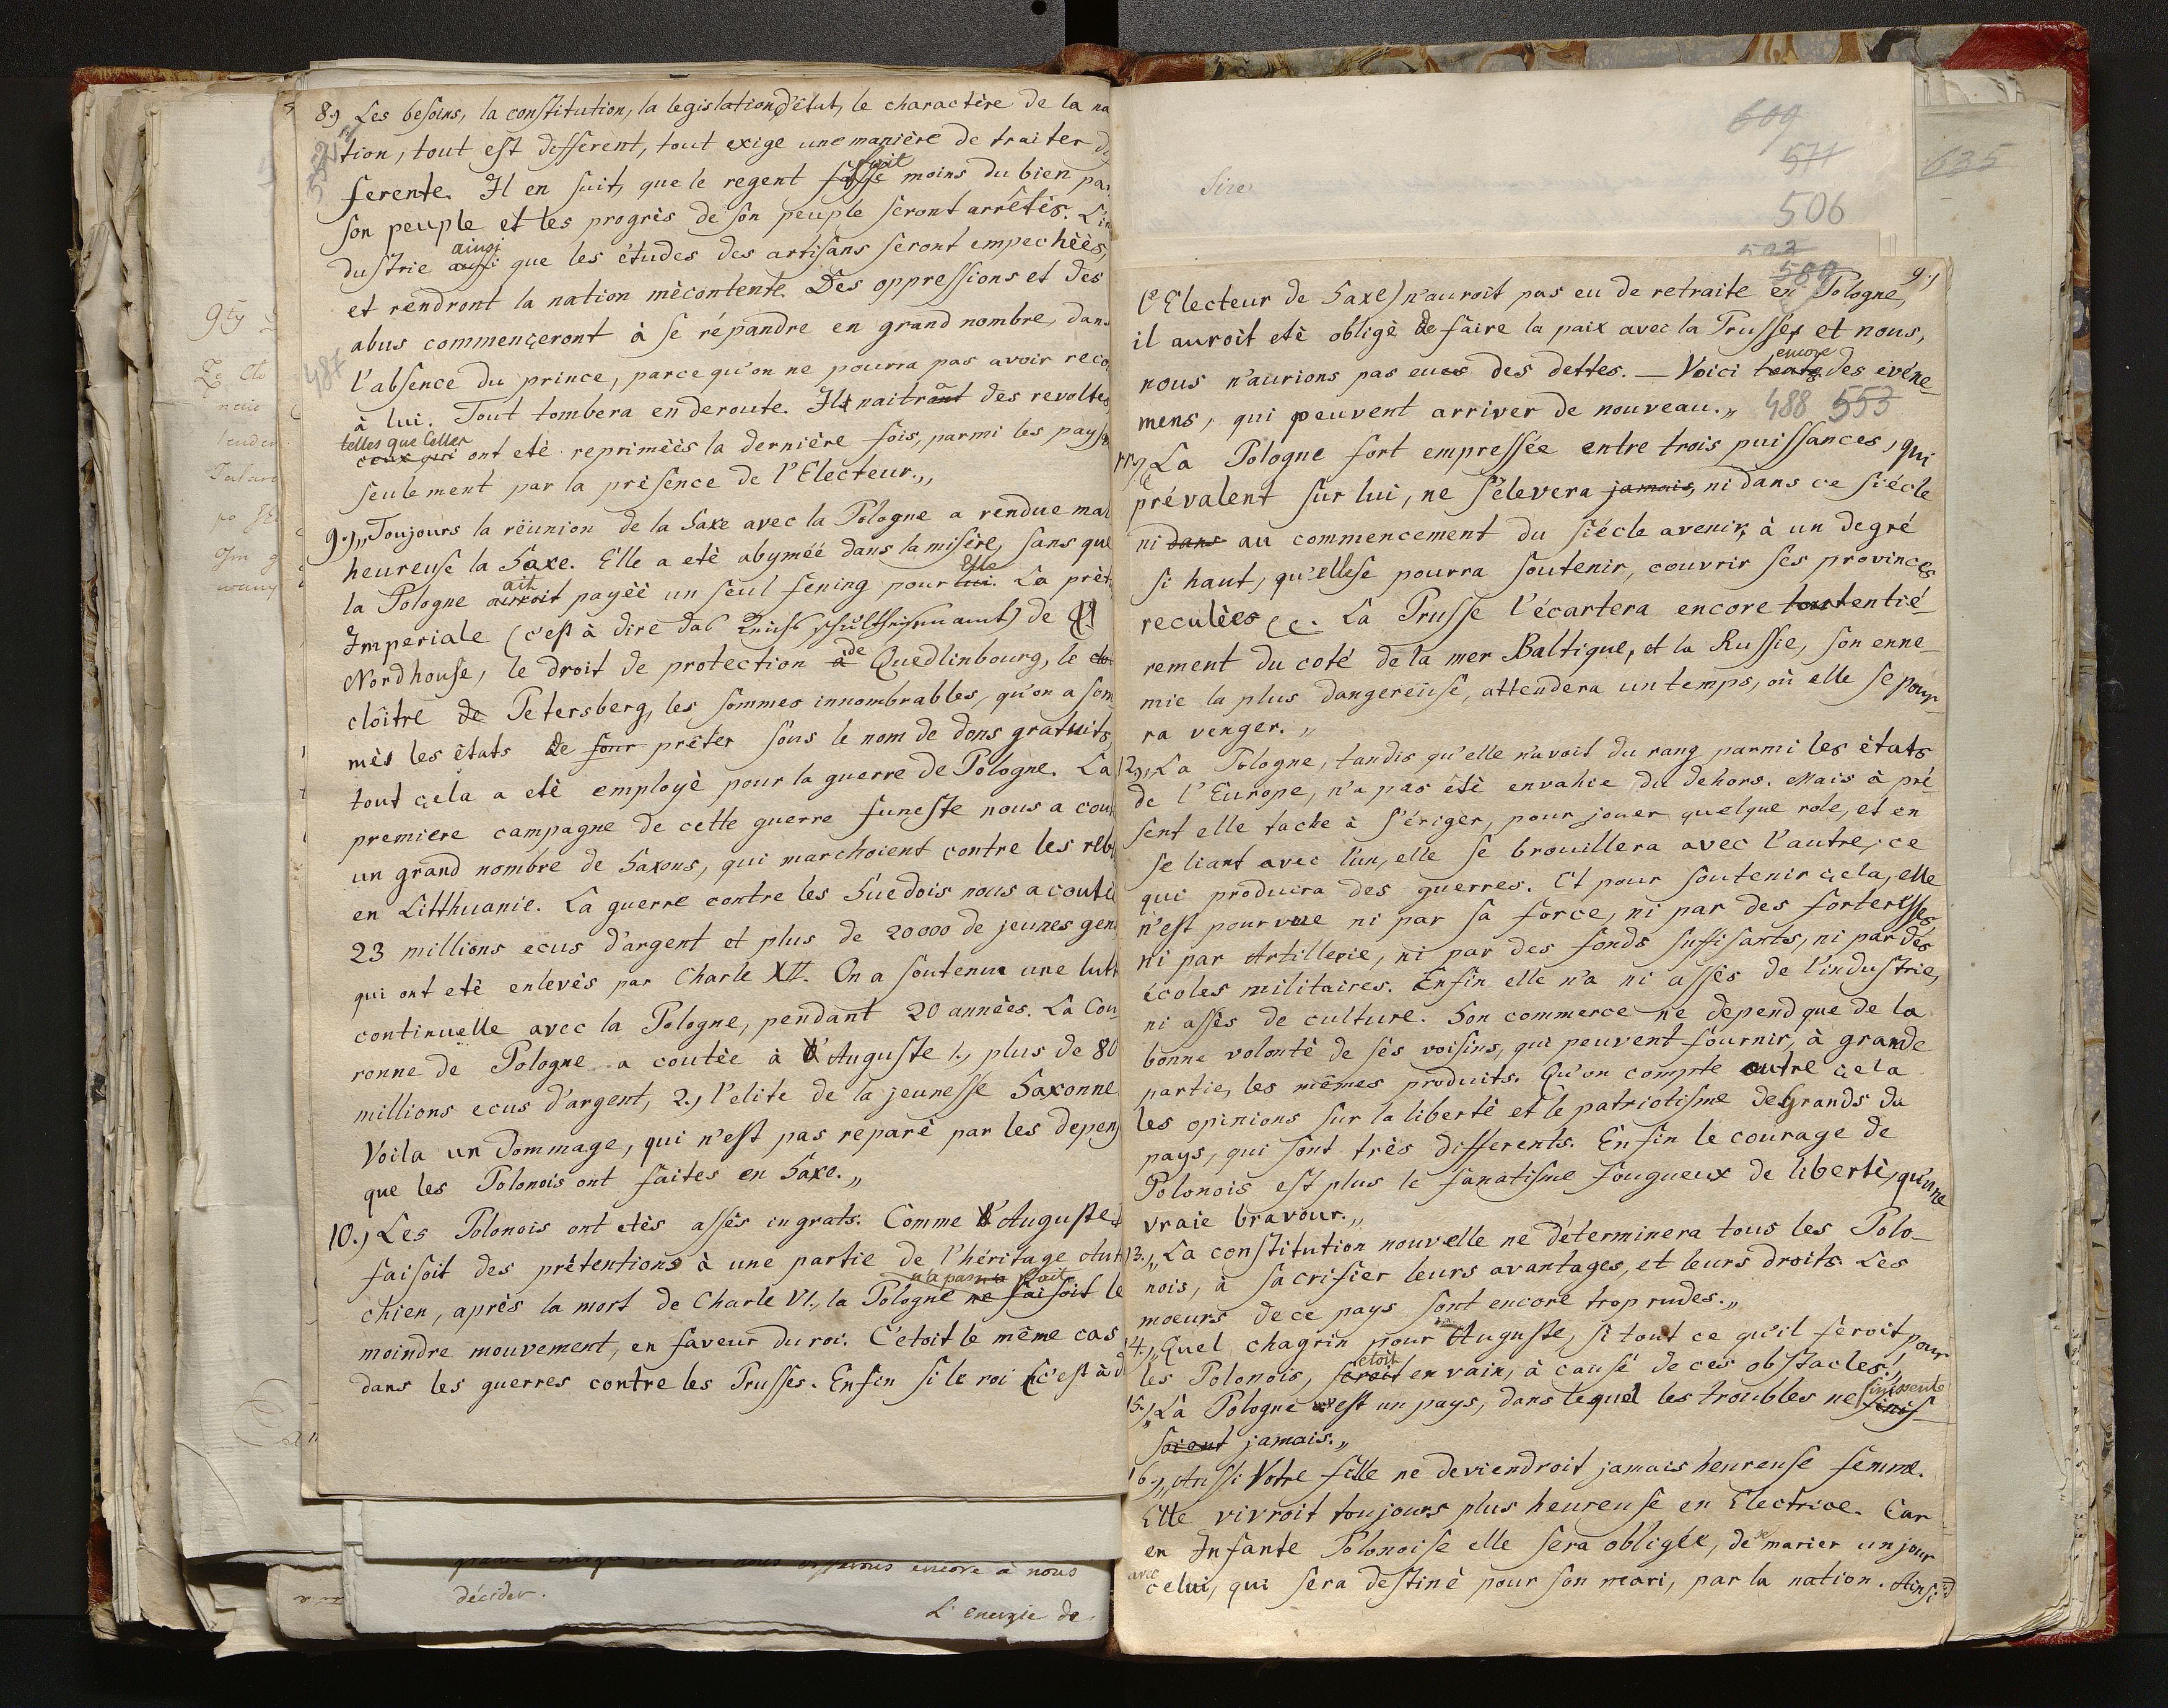 8.) Les besoins, la constitution, la legislation d'état, le charactère de la na
tion, tout est different, tout exige une manière de traiter di
ferente. Il en suit, que le regent fait moins du bien par
son peuple et les progrès de son peuple seront arrêtés. L'in
dustrie ainsi que les études des artisans seront empechèès,
et rendront la nation mècontente. Des oppressions et des
abus commençeront à se répandre en grand nombre, dans
487
l'absence du prince, parce qu'on ne pourra pas avoir recou
à lui. Tout tombera en deroute. Il naitra des revoltes,
telles que celles
ceux qui ont etè reprimèès la dernière fois, parmi les paysa
seulement par la prèsence de l'Electeur.„
9.) „Toujours la rëunion de la Saxe avec la Pologne a rendue mal
heureuse la Saxe. Elle a etè abyméé dans la misère, sans que
la Pologne ait payèè un seul fening pour Elle. La prèt
Imperiale (c'est à dire das Reichsschultheissenamt) de
Nordhouse, le droit de protection de Quedlinbourg, le
clôitre de Petersberg, les sommes innombrables, qu'on a som
mès les êtats de prêter sous le nom de dons gratuits,
tout çela a etè employè pour la guerre de Pologne. La
premiere campagne de cette guerre funeste nous a cout
un grand nombre de Saxons, qui marchoient contre les rebe
en Litthuanie. La guerre contre les Suedois nous a coutè
23 millions ecus d'argent et plus de 20000 de jeunes gens
qui ont etè enlevès par Charle XII. On a soutenue une lutt
continuelle avec la Pologne, pendant 20 annèes. La Cou-
ronne de Pologne a coutèe à Auguste 1.) plus de 80
millions ecus d'argent, 2.) l'elite de la jeunesse Saxonne
Voila un dommage, qui n'est pas reparè par les depens
que les Polonois ont faites en Saxe.„
10.) Les Polonois ont etès assès ingrats. Comme Auguste
faisoit des prètentions à une partie de l'héritage Autri
n'a pas fait
chien, après la mort de Charle VI., la Pologne ne faisoit le
moindre mouvement, en faveur du roi. C'etoit le même cas
dans les guerres contre les Prusses. Enfin si le roi (c'est à d
décider.
L'energie de
Sire
609
571
506
635
589
9.)
l'Electeur de Saxe) n'auroit pas eu de retraite en Pologne,
il auroit etè obligè de faire la paix avec la Prusse, et nous,
nous n'aurions pas eu des dettes. — Voici encore des evéne-
mens, qui peuvent arriver de nouveau.„ 488 553
11.) La Pologne fort empressée entre trois puissances, qui
prévalent sur lui, ne s'elevera jamais, ni dans ce siécle
ni dans au commencement du siécle avenir, à un degré
si haut, qu'elle se pourra soutenir, couvrir ses provinces
reculèes &c. La Prusse l'écartera encore tout entié-
rement du coté de la mer Baltique, et la Russie, son enne-
mie la plus dangereüse, attendera un temps, où elle se pour-
ra venger.„
12.) „La Pologne, tandis qu'elle n'avoit du rang parmi les ètats
de l'Europe, n'a pas étè envahie du dehors. Mais à pré-
sent elle tache à s'ériger, pour jouer quelque role, et en
se liant avec l'un, elle se brouillera avec l'autre, ce
qui produira des guerres. Et pour soutenir çela, elle
n'est pourvue ni par sa force, ni par des forteresses
ni par Artillerie, ni par des fonds suffisants, ni par des
écoles militaires. Enfin elle n'a ni assès de l'industrie,
ni assès de culture. Son commerce ne depend que de la
bonne volontè de sès voisins, qui peuvent fournir, à grande
partie, les mêmes produits. Qu'on compte outre çela
les opinions sur la libertè et le patriotisme des Grands du
pays, qui sont très differents. Enfin le courage de
Polonois est plus le fanatisme fougueux de libertè, qu'une
vraie bravour.„
13.) „La constitution nouvelle ne déterminera tous les Polo-
nois, à sacrifier leurs avantages, et leurs droits. Les
moeurs de ce pays sont encore trop rudes.„
14.) „Quel chagrin pour Auguste, si tout ce qu'il feroit pour
les Polonois, etoit en vain, à cause de ces obstacles.„
15.) „La Pologne est un pays, dans lequel les troubles ne finissent
jamais.„
16.) „Aussi Votre fille ne deviendroit jamais heureuse femme.
Elle vivroit toujours plus heureuse en Electrice. Car
en Infante Polonoise elle sera obligée, de se marier un jour
avec celui, qui sera destinè pour son mari, par la nation. Ainsi